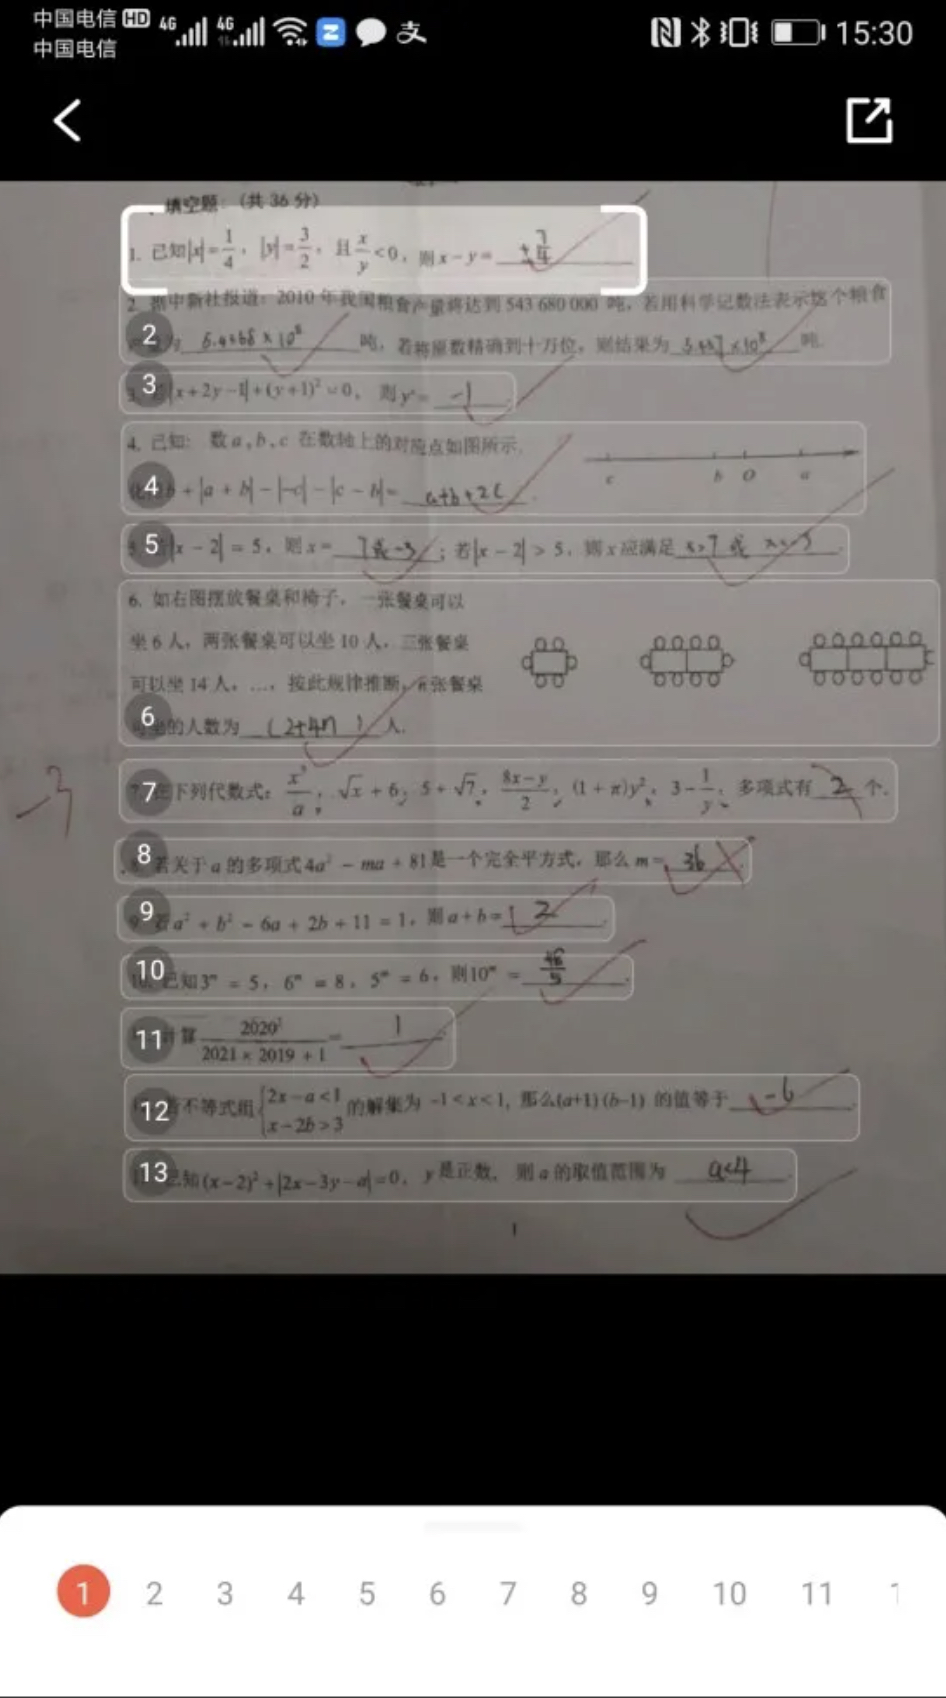 中国电信 HD 4G 4G 15:30
中国电信
填空题：（共 36 分）
1. 已知|x|=1/4，|y|=3/2，且 x/y<0，则 x-y= ±7/4
2. 据中新社报道：2010 年我国粮食产量将达到 543 680 000 吨，若用科学记数法表示这个粮食
2 产量为 5.4368×10⁸ 吨，若将原数精确到十万位，则结果为 5.437×10⁸ 吨
3 |x+2y-1|+(y+1)²=0，则 = -1
4. 已知：数 a,b,c 在数轴上的对应点如图所示，
c b O a
4 b+|a+b|-|-c|-|c-b|= a+b+2c
5 |x-2|=5，则 x= 7或-3；若|x-2|>5，则 x 应满足 x>7 或 x<-3
6. 如右图摆放餐桌和椅子，一张餐桌可以
坐 6 人，两张餐桌可以坐 10 人，三张餐桌
可以坐 14 人，…，按此规律推断，n 张餐桌
6 可坐的人数为 (2+4n) 人.
-3
7 在下列代数式：x³/a，√x+6，5+√7，(8x-y)/2，(1+π)y²，3-1/y，多项式有 2 个.
8 若关于 a 的多项式 4a²-ma+81 是一个完全平方式，那么 m= 36
9 若 a²+b²-6a+2b+11=1，则 a+b= 2
10 已知 3ᵐ=5，6ᵐ=8，5ᵐ=6，则 10ᵐ= 48/5
11 计算 2020²/(2021×2019+1)= 1
12 若不等式组{2x-a<1
x-2b>3 的解集为 -1<x<1，那么(a+1)(b-1) 的值等于 -6
13 已知(x-2)²+|2x-3y-a|=0，y 是正数，则 a 的取值范围为 a<4
1
1 2 3 4 5 6 7 8 9 10 11